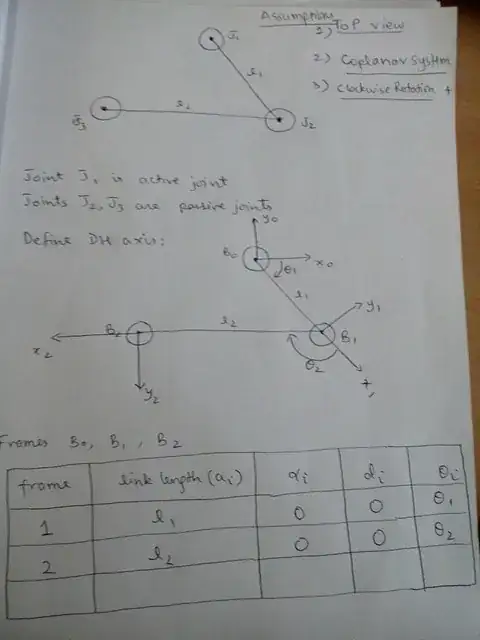 Assumptions
1) Top view
2) Coplanar System
3) Clockwise Rotation +
J1
l1
l2
J3
J2
Joint J1 is active joint
Joints J2, J3 are passive joints
Define DH axis:
y0
B0
x0
θ1
l1
y1
B2
l2
B1
x2
θ2
y2
Frames B0, B1, B2
frame link length (ai) αi di θi
1 l1 0 0 θ1
2 l2 0 0 θ2